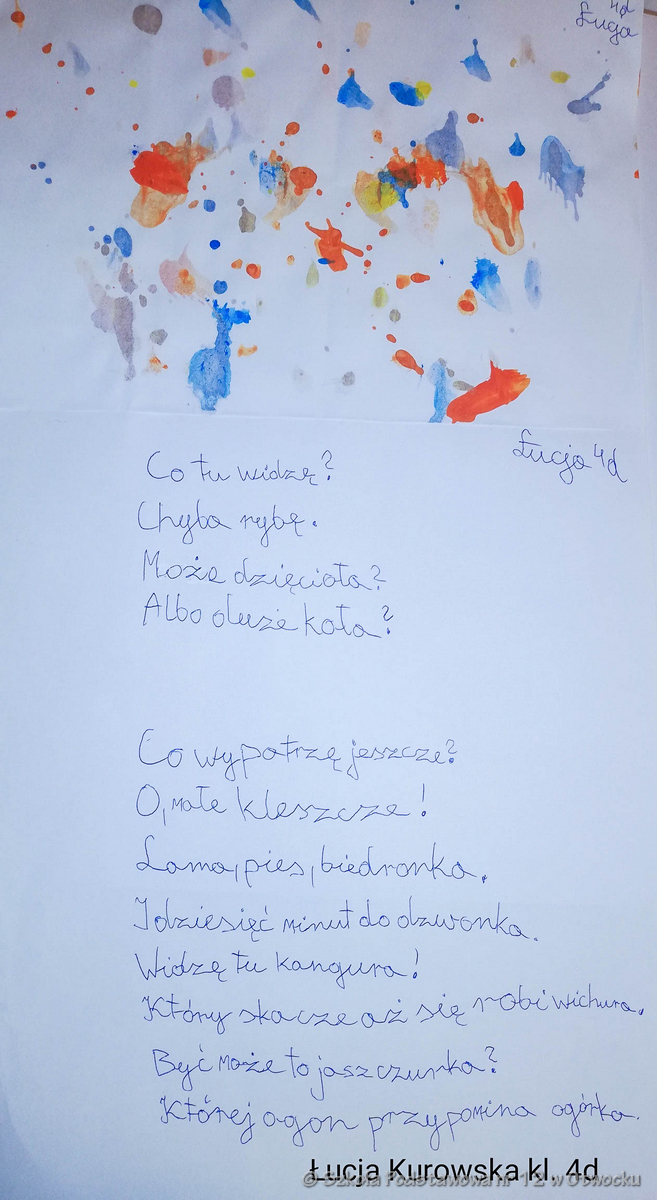 4d
Łucja
Łucja 4d
Co tu widzę?
Chyba rybę.
Może dzięcioła?
Albo duże koła?
Co wypatrzę jeszcze?
O, małe kleszcze!
Lama, pies, biedronka.
I dziesięć minut do dzwonka.
Widzę tu kangura!
Który skacze aż się robi wichura.
Być może to jaszczurka?
Której ogon przypomina ogórka.
Łucja Kurowska kl. 4d
© Szkoła Podstawowa nr 12 w Otwocku